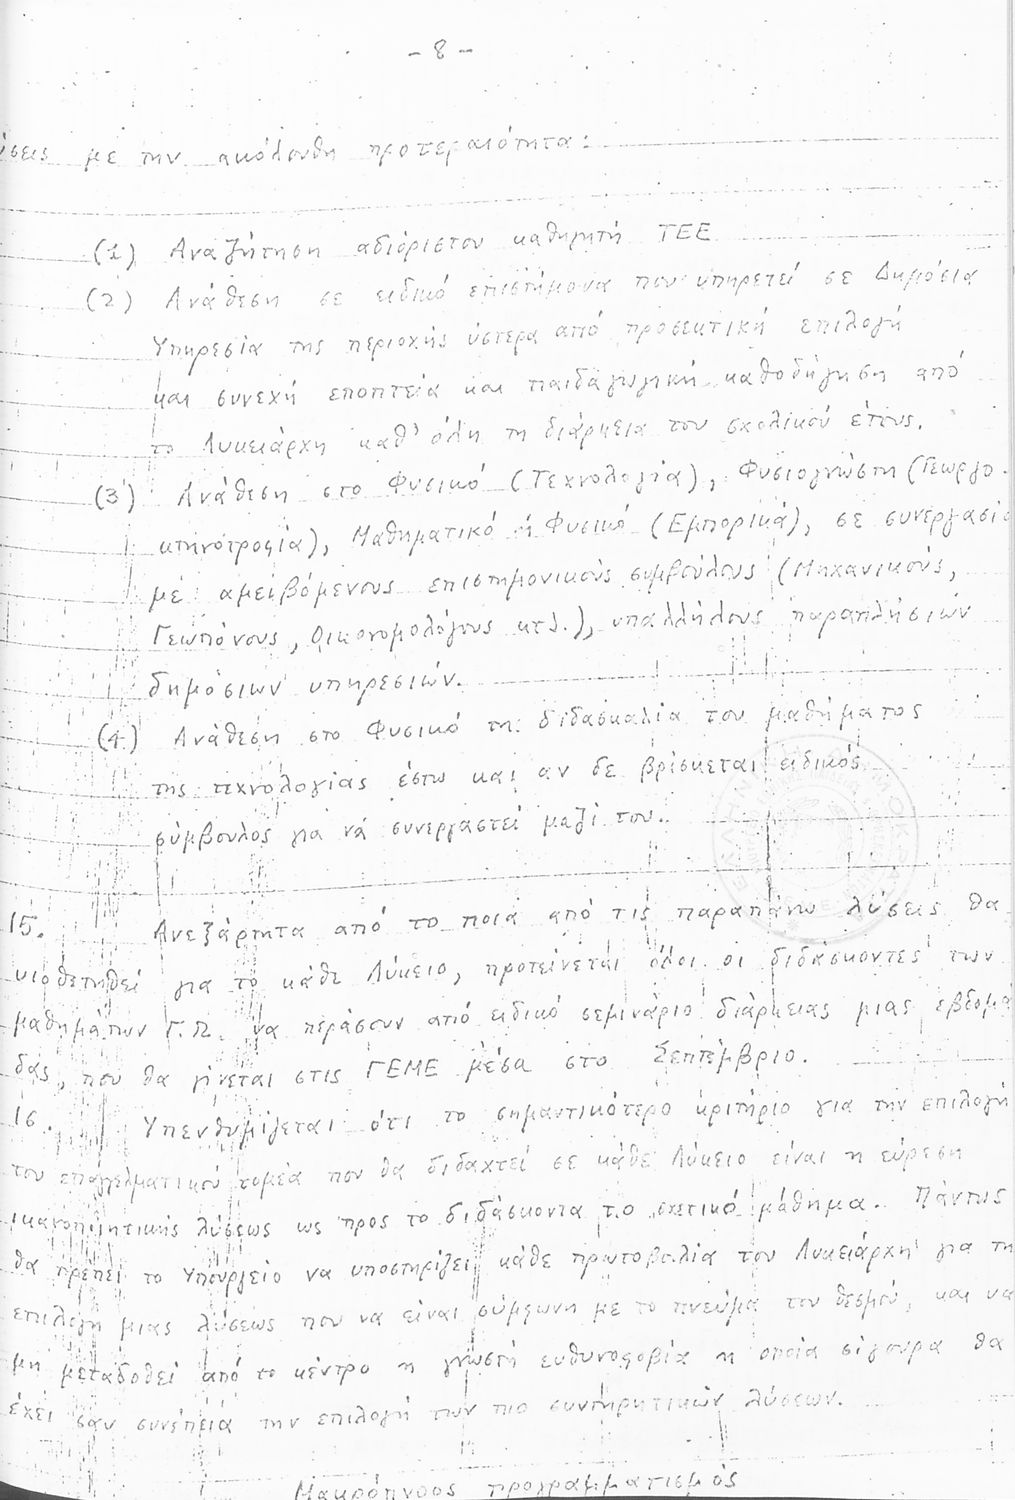 - 8 -
ύσεις με την ακόλουθη προτεραιότητα:
(1) Αναζήτηση αδιόριστου καθηγητή ΤΕΕ
(2) Ανάθεση σε ειδικό επιστήμονα που υπηρετεί σε Δημόσια
Υπηρεσία της περιοχής ύστερα από προσεκτική επιλογή
και συνεχή εποπτεία και παιδαγωγική καθοδήγηση από
το Λυκειάρχη καθ' όλη τη διάρκεια του σχολικού έτους.
(3) Ανάθεση στο Φυσικό (Τεχνολογία), Φυσιογνώστη (Γεωργο-
κτηνοτροφία), Μαθηματικό ή Φυσικό (Εμπορικά), σε συνεργασία
με αμειβόμενους επιστημονικούς συμβούλους (Μηχανικούς,
Γεωπόνους, Οικονομολόγους κτλ.), υπαλλήλους παραπλήσιων
δημόσιων υπηρεσιών.
(4) Ανάθεση στο Φυσικό τη διδασκαλία του μαθήματος
της τεχνολογίας έστω και αν δε βρίσκεται ειδικός
σύμβουλος για νά συνεργαστεί μαζί του.
15. Ανεξάρτητα από το ποιά από τις παραπάνω λύσεις θα
υιοθετηθεί για το κάθε Λύκειο, προτείνεται όλοι οι διδάσκοντες των
μαθημάτων Γ.Π. να περάσουν από ειδικό σεμινάριο διάρκειας μιας εβδομά
δας, που θα γίνεται στις ΓΕΜΕ μέσα στο Σεπτέμβριο.
16. Υπενθυμίζεται ότι το σημαντικότερο κριτήριο για την επιλογή
του επαγγελματικού τομέα που θα διδαχτεί σε κάθε Λύκειο είναι η εύρεση
ικανοποιητικής λύσεως ως προς το διδάσκοντα το σχετικό μάθημα. Πάντως
θα πρέπει το Υπουργείο να υποστηρίζει κάθε πρωτοβουλία του Λυκειάρχη για τη
επιλογή μιας λύσεως που να είναι σύμφωνη με το πνεύμα του θεσμού, και να
μη μεταδοθεί από το κέντρο η γνωστή ευθυνοφοβία η οποία σίγουρα θα
έχει σαν συνέπεια την επιλογή των πιο συντηρητικών λύσεων.
Μακρόπνοος προγραμματισμός